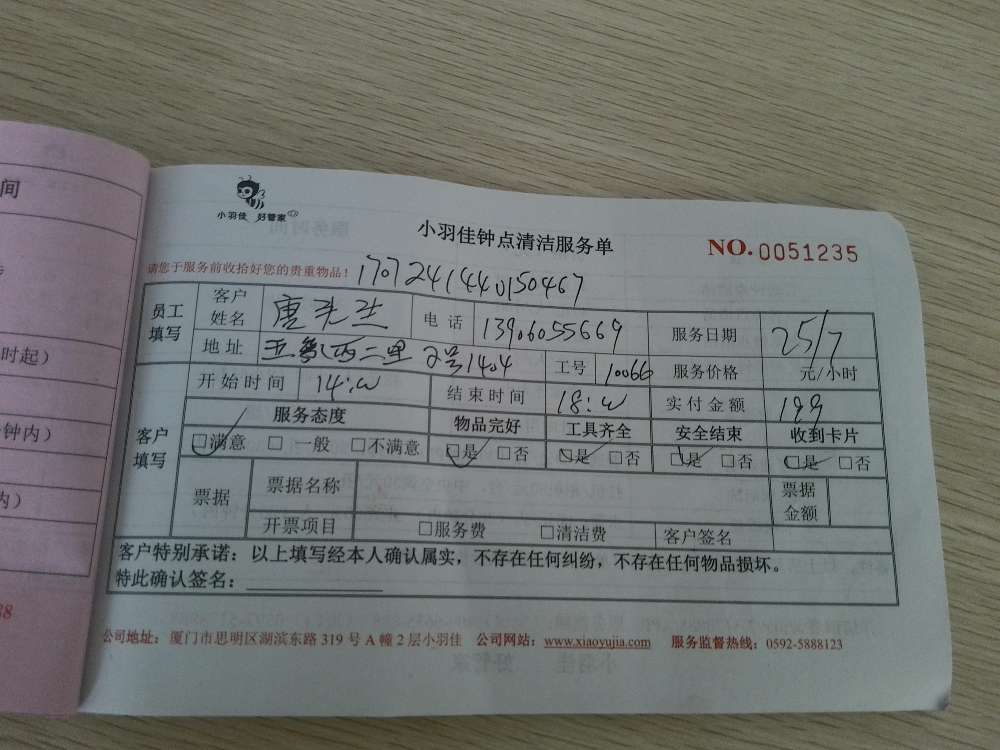 间
时起)
钟内)
内)
38
小羽佳 好管家
小羽佳钟点清洁服务单
NO.0051235
请您于服务前收拾好您的贵重物品!
1707241440150467
员工填写 客户姓名 唐先生 电话 13906055669 服务日期 25/7
地址 2号1404 工号 10066 服务价格 元/小时
开始时间 14:00 结束时间 18:00 实付金额 199
客户填写 服务态度 物品完好 工具齐全 安全结束 收到卡片
□满意 □一般 □不满意 □是 □否 □是 □否 □是 □否 □是 □否
票据 票据名称 票据金额
开票项目 □服务费 □清洁费 客户签名
客户特别承诺:以上填写经本人确认属实,不存在任何纠纷,不存在任何物品损坏。
特此确认签名:
公司地址:厦门市思明区湖滨东路319号A幢2层小羽佳 公司网站:www.xiaoyujia.com 服务监督热线:0592-5888123